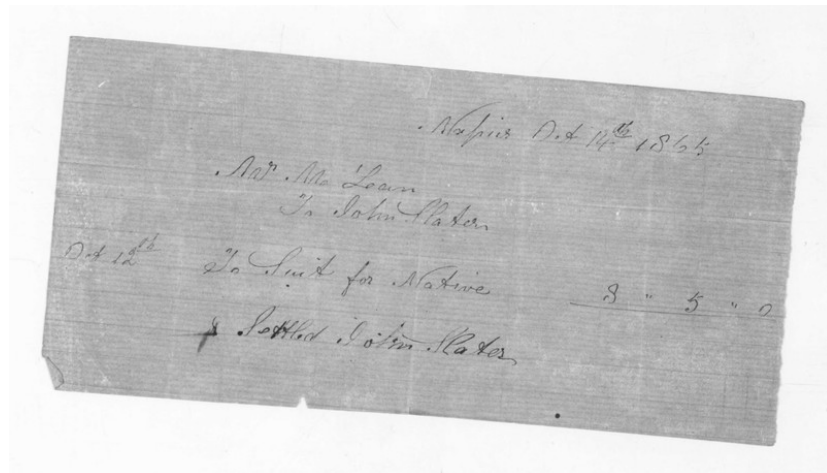 Napier Oct 14th 1865
Mr Mc Lean
To John Slater
Oct 12th To Suit for Native 3 " 5 " 0
Settled John Slater